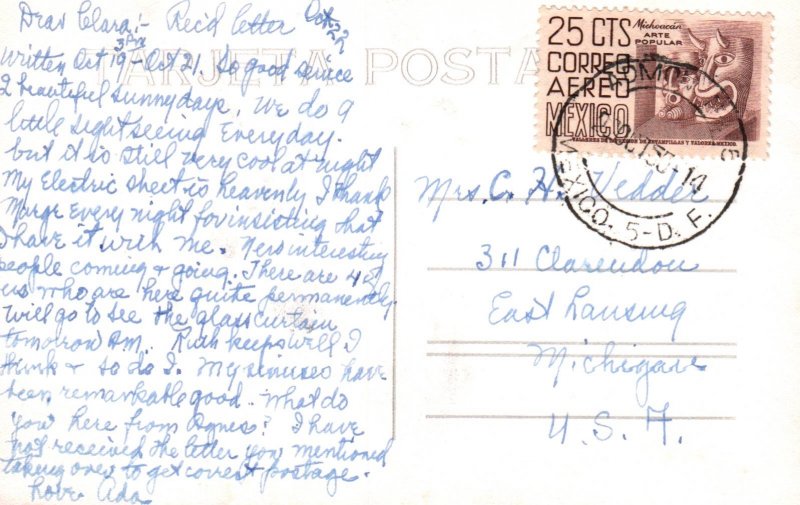 Dear Clara;- Rec'd letter Oct 22
3 PM
Written Oct 19 - Oct 21. So good since
2 beautiful sunny days, We do a
little sightseeing Everyday.
but it is still very cool at night
My Electric sheet is heavenly I thank
Marge Every night for insisting that
I have it with me. New interesting
people coming & going. There are 4 of
us who are here quite permanently.
Will go to see the glass curtain
tomorrow A.M. Ruth keeps well I
think & so do I. My sinuses have
been remarkable good. What do
you here from Agnes? I have
not received the letter you mentioned
taking over to get correct postage.
Love Ada
TARJETA POSTAL
25 CTS
CORREO
AEREO
MEXICO
Michoacán
ARTE
POPULAR
TALLERES DE IMPRESION DE ESTAMPILLAS Y VALORES-MEXICO.
MEXICO. 5-D. F.
Mrs. C. H. Vedder
311 Clarendon
East Lansing
Michigan
U. S. A.